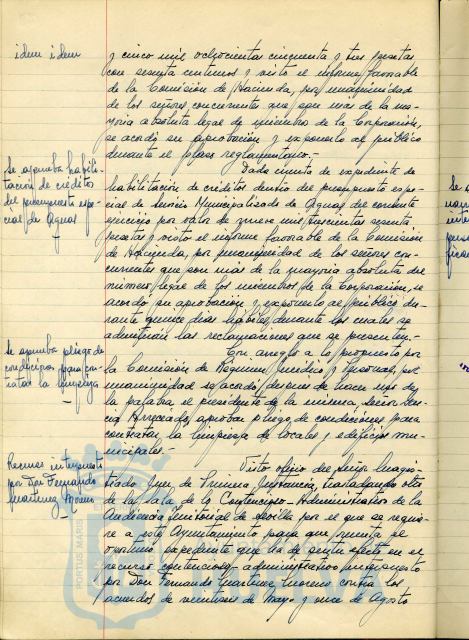 idem idem
y cinco mil ochocientas cincuenta y tres pesetas
con sesenta centimos y visto el informe favorable
de la Comisión de Hacienda, por unanimidad
de los señores concurrentes que son mas de la ma-
yoria absoluta legal de miembros de la Corporación,
se acordó su aprobación y exponerlo al público
durante el plazo reglamentario.-
Se aprueba habili-
tación de créditos
del presupuesto espe-
cial de Aguas
Dada cuenta de expediente de
habilitación de créditos dentro del presupuesto espe-
cial de Servicio Municipalizado de Aguas del corriente
ejercicio por valor de nueve mil sesenta
pesetas y visto el informe favorable de la Comisión
de Hacienda, por unanimidad de los señores con-
currentes que son más de la mayoria absoluta del
número legal de los miembros de la Corporación, se
acordó su aprobación y exponerlo al público du-
rante quince dias hábiles, durante los cuales se
admitirán las reclamaciones que se presenten.-
Se aprueba pliego de
condiciones para con-
tratar la limpieza
Con arreglo a lo propuesto por
la Comisión de Regimen Juridico y por
unanimidad se acordó, despues de hacer uso de
la palabra el presidente de la misma, señor
aprobar pliego de condiciones para
contratar la limpieza de locales y edificios mu-
nicipales.-
Recurso interpuesto
por Don Fernando
Martinez Moreno
Visto oficio del señor Magis-
trado Juez de Primera Instancia, trasladando otro
de la Sala de lo Contencioso-Administrativo de la
Audiencia Territorial de Sevilla por el que se requie-
re a este Ayuntamiento para que remita el
oportuno expediente que ha de surtir efecto en el
recurso contencioso-administrativo interpuesto
por Don Fernando Martinez Moreno contra los
acuerdos de veintiseis de Mayo y once de Agosto
PORTUS MARIS